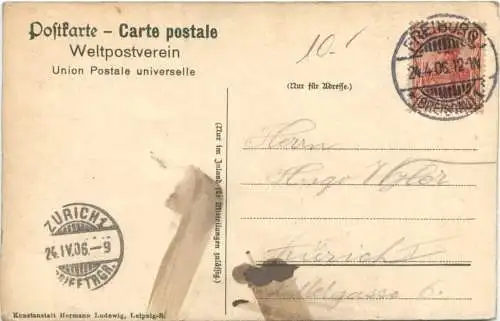 Postkarte – Carte postale
Weltpostverein
Union Postale universelle
10.-
FREIBURG
24.4.06.12-1N
(BREISGAU)
(Nur für Adresse.)
(Nur im Inland für Mitteilungen zulässig.)
Herrn
Hugo
Zürich
6.
ZÜRICH 1
24.IV.06.–9
BRIEFTRGR.
Kunstanstalt Hermann Ludewig, Leipzig-R.